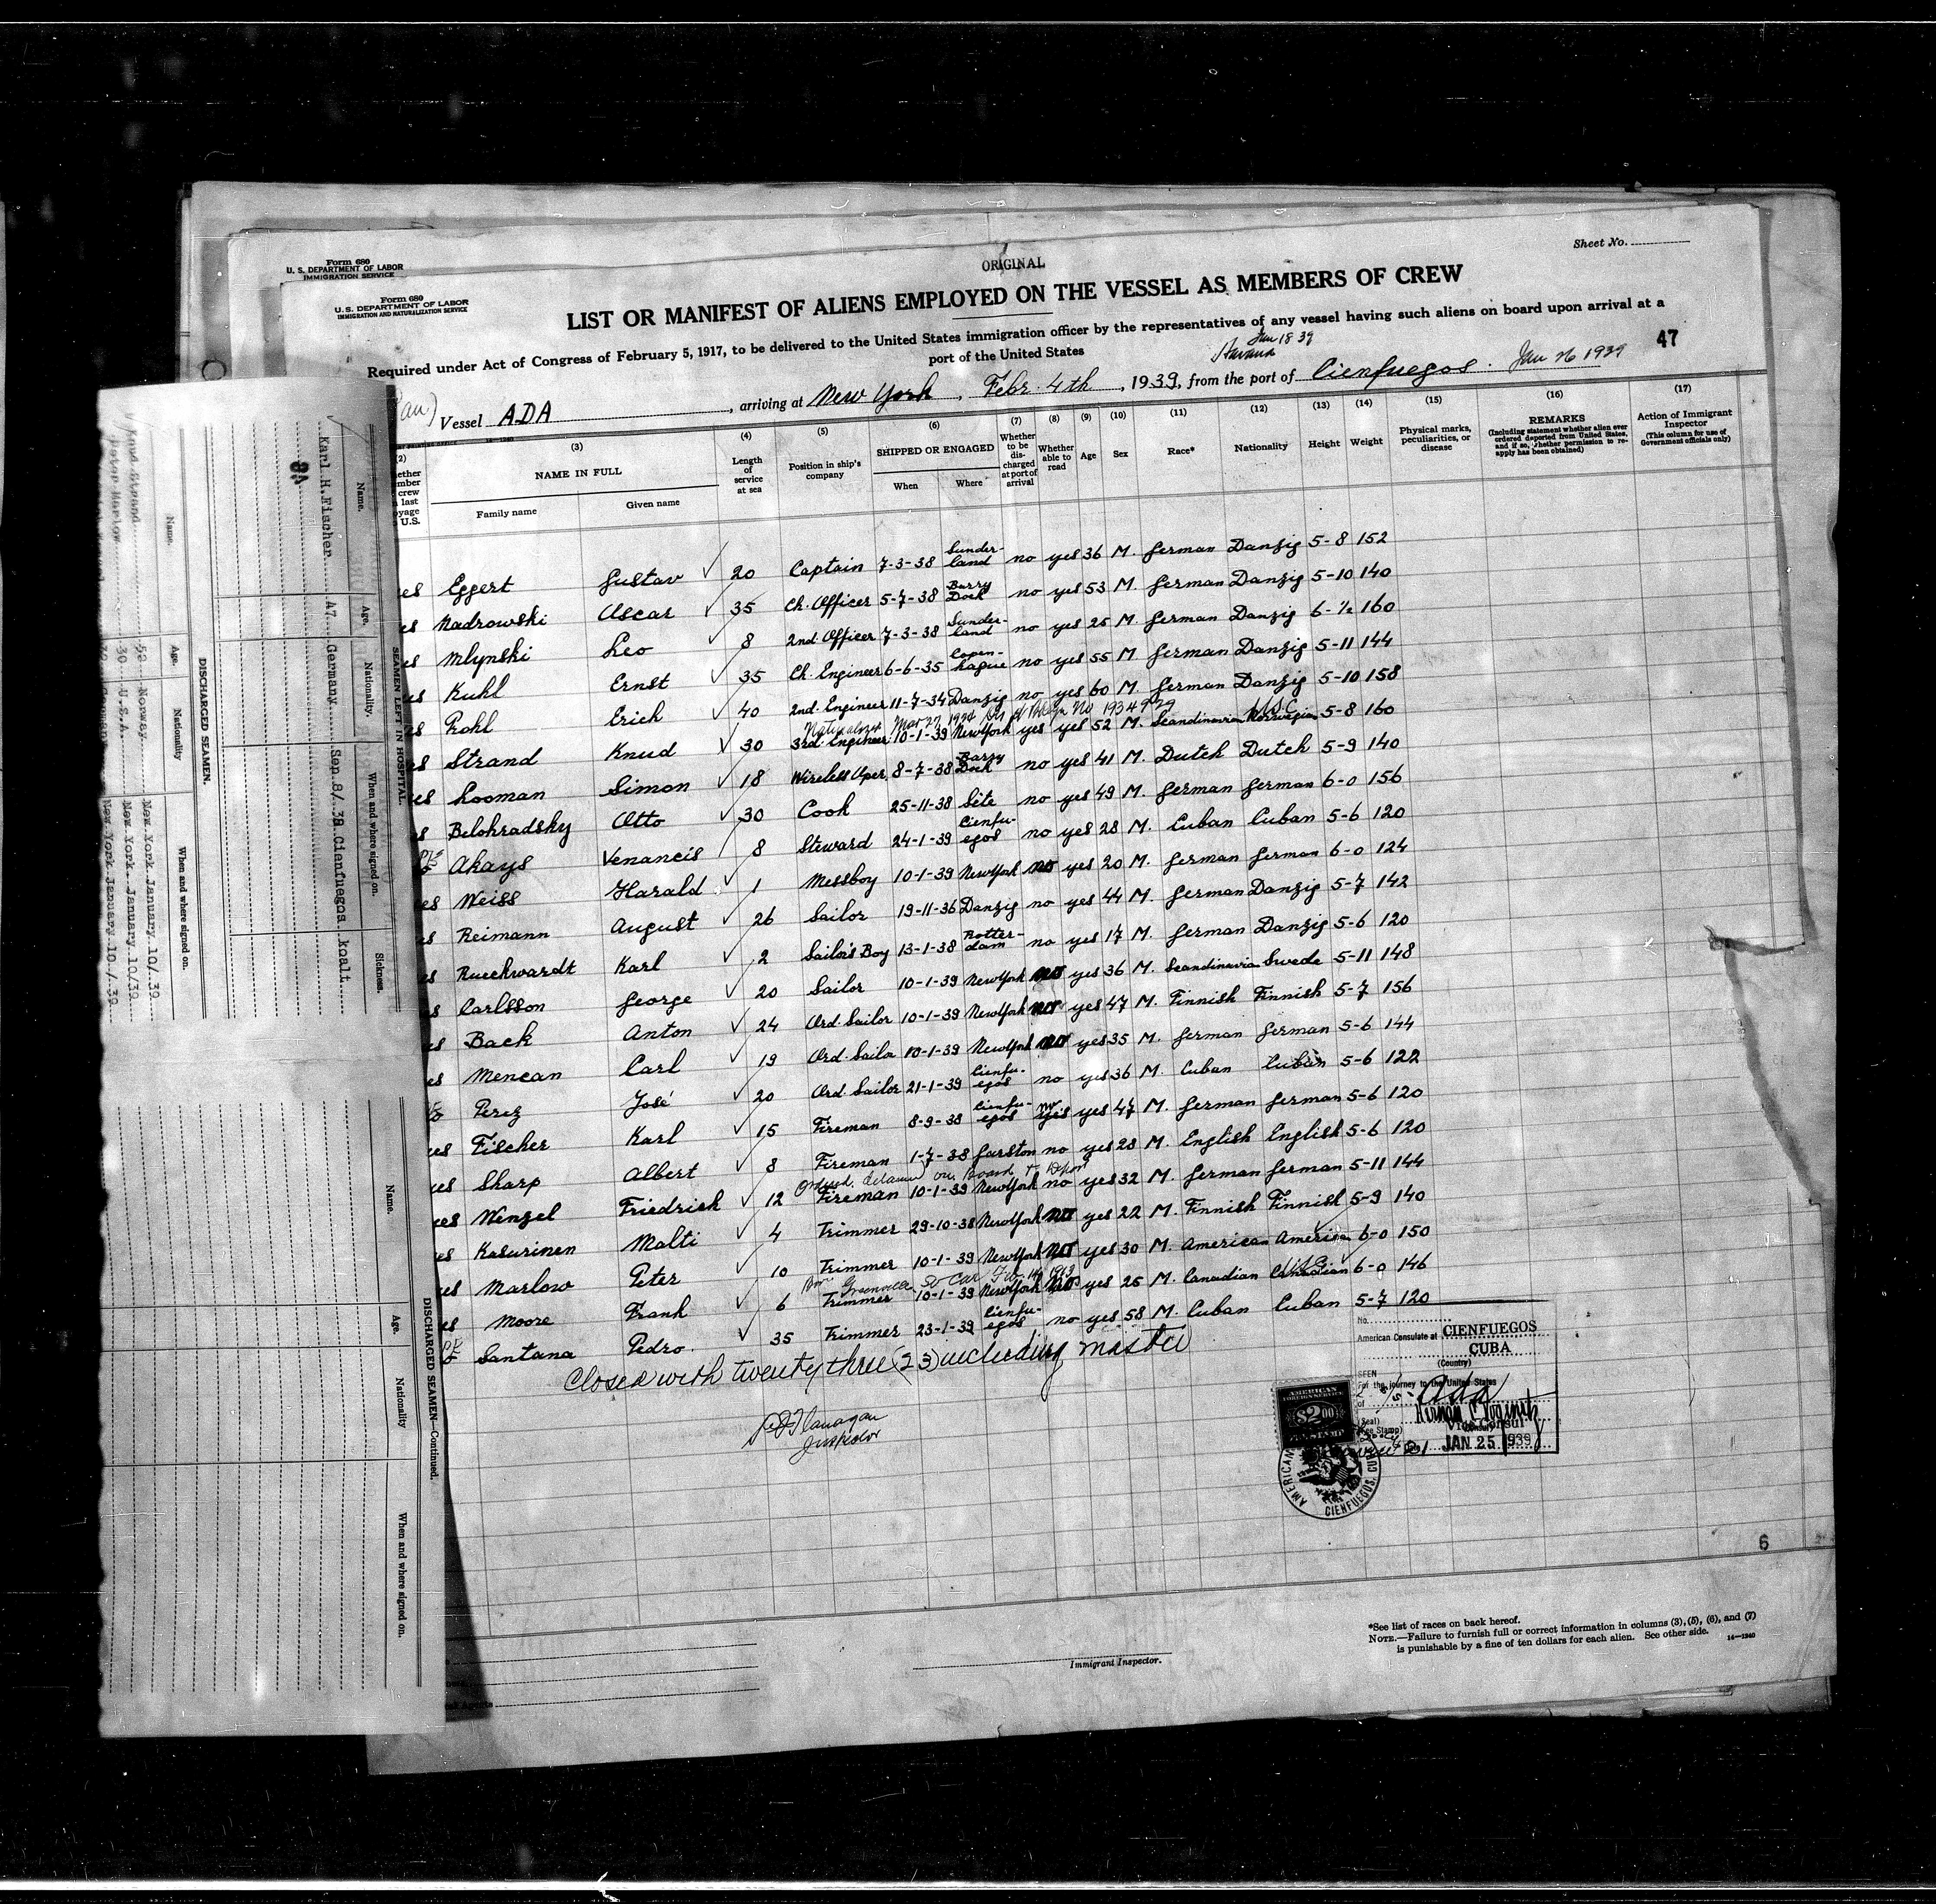 Form 680
U. S. DEPARTMENT OF LABOR
IMMIGRATION SERVICE
Form 680
U. S. DEPARTMENT OF LABOR
IMMIGRATION AND NATURALIZATION SERVICE
Sheet No.
ORIGINAL
LIST OR MANIFEST OF ALIENS EMPLOYED ON THE VESSEL AS MEMBERS OF CREW
Required under Act of Congress of February 5, 1917, to be delivered to the United States immigration officer by the representatives of any vessel having such aliens on board upon arrival at a
port of the United States
Jan 18 39
Havana
47
Vessel ADA, arriving at New York, Febr. 4th, 1939, from the port of Cienfuegos. Jan 26 1939
(2) (3) (4) (5) (6) (7) (8) (9) (10) (11) (12) (13) (14) (15) (16) (17)
NAME IN FULL
Family name
Given name
Length of service at sea
Position in ship's company
SHIPPED OR ENGAGED
When
Where
Whether to be discharged at port of arrival
Whether able to read
Age
Sex
Race*
Nationality
Height
Weight
Physical marks, peculiarities, or disease
REMARKS
(Including statement whether alien ever ordered deported from United States, and if so, whether permission to reapply has been obtained)
Action of Immigrant Inspector
(This column for use of Government officials only)
es Eggert Gustav 20 Captain 7-3-38 Sunderland no yes 36 M. German Danzig 5-8 152
es Nadrowski Oscar 35 Ch. Officer 5-7-38 Barry Dock no yes 53 M. German Danzig 5-10 140
es Mlynski Leo 8 2nd Officer 7-3-38 Sunderland no yes 25 M. German Danzig 6-½ 160
es Kuhl Ernst 35 Ch. Engineer 6-6-35 Copenhague no yes 55 M German Danzig 5-11 144
es Rohl Erich 40 2nd. Engineer 11-7-34 Danzig no yes 60 M. German Danzig 5-10 158
U.S.C.
es Strand Knud 30 3rd. Engineer 10-1-39 NewYork yes yes 52 M. Scandinavian Norwegian 5-8 160
es Looman Simon 18 Wireless Oper. 8-7-38 Barry Dock no yes 41 M. Dutch Dutch 5-9 140
es Belohradsky Otto 30 Cook 25-11-38 Séte no yes 49 M. German German 6-0 156
Akays Venancis 8 Steward 24-1-39 Cienfuegos no yes 28 M. Cuban Cuban 5-6 120
es Weiss Harald 1 Messboy 10-1-39 NewYork no yes 20 M. German German 6-0 124
es Reimann August 26 Sailor 19-11-36 Danzig no yes 44 M. German Danzig 5-7 142
es Rueckwardt Karl 2 Sailor's Boy 13-1-38 Rotterdam no yes 17 M. German Danzig 5-6 120
es Carlsson George 20 Sailor 10-1-39 NewYork no yes 36 M. Scandinavia Swede 5-11 148
es Back Anton 24 Ord. Sailor 10-1-39 NewYork no yes 47 M. Finnish Finnish 5-7 156
es Mencan Carl 19 Ord. Sailor 10-1-39 NewYork no yes 35 M. German German 5-6 144
Perez José 20 Ord. Sailor 21-1-39 Cienfuegos no yes 36 M. Cuban Cuban 5-6 122
es Fischer Karl 15 Fireman 8-9-38 Cienfuegos no yes yes 47 M. German German 5-6 120
es Sharp Albert 8 Fireman 1-7-38 Garston no yes 28 M. English English 5-6 120
Ordered detained on Board & Deport
es Wenzel Friedrich 12 Fireman 10-1-39 NewYork no yes 32 M. German German 5-11 144
es Kasurinen Malti 4 Trimmer 29-10-38 NewYork no yes 22 M. Finnish Finnish 5-9 140
es Marlow Peter 10 Trimmer 10-1-39 NewYork no yes 30 M. American American 6-0 150
U.S.C.
es Moore Frank 6 Trimmer 10-1-39 NewYork yes 25 M. Canadian Canadian 6-0 146
Santana Pedro 35 Trimmer 23-1-39 Cienfuegos no yes 58 M. Cuban Cuban 5-7 120
Closed with twenty three (23) including master
Flanagan
Inspector
No.
American Consulate at CIENFUEGOS
CUBA
(Country)
SEEN
For the journey to the United States
of Ada
(Seal)
(Fee Stamp)
Vice Consul
JAN 25 1939
AMERICAN
FOREIGN SERVICE
$2.00
CIENFUEGOS, CUBA
6
*See list of races on back hereof.
NOTE.—Failure to furnish full or correct information in columns (3), (5), (6), and (7)
is punishable by a fine of ten dollars for each alien. See other side. 14—1240
Immigrant Inspector.
SEAMEN LEFT IN HOSPITAL.
Name. Age. Nationality. When and where signed on. Sickness.
Karl H.Fischer 47 Germany Sep.8/.38 Cienfuegos
DISCHARGED SEAMEN.
Name. Age. Nationality When and where signed on.
Knud Strand 52 Norway New York January.10/.39
Peter Marlow 30 U.S.A. New York. January.10/39
New York January.10./.39
DISCHARGED SEAMEN—Continued.
Name. Age. Nationality When and where signed on.